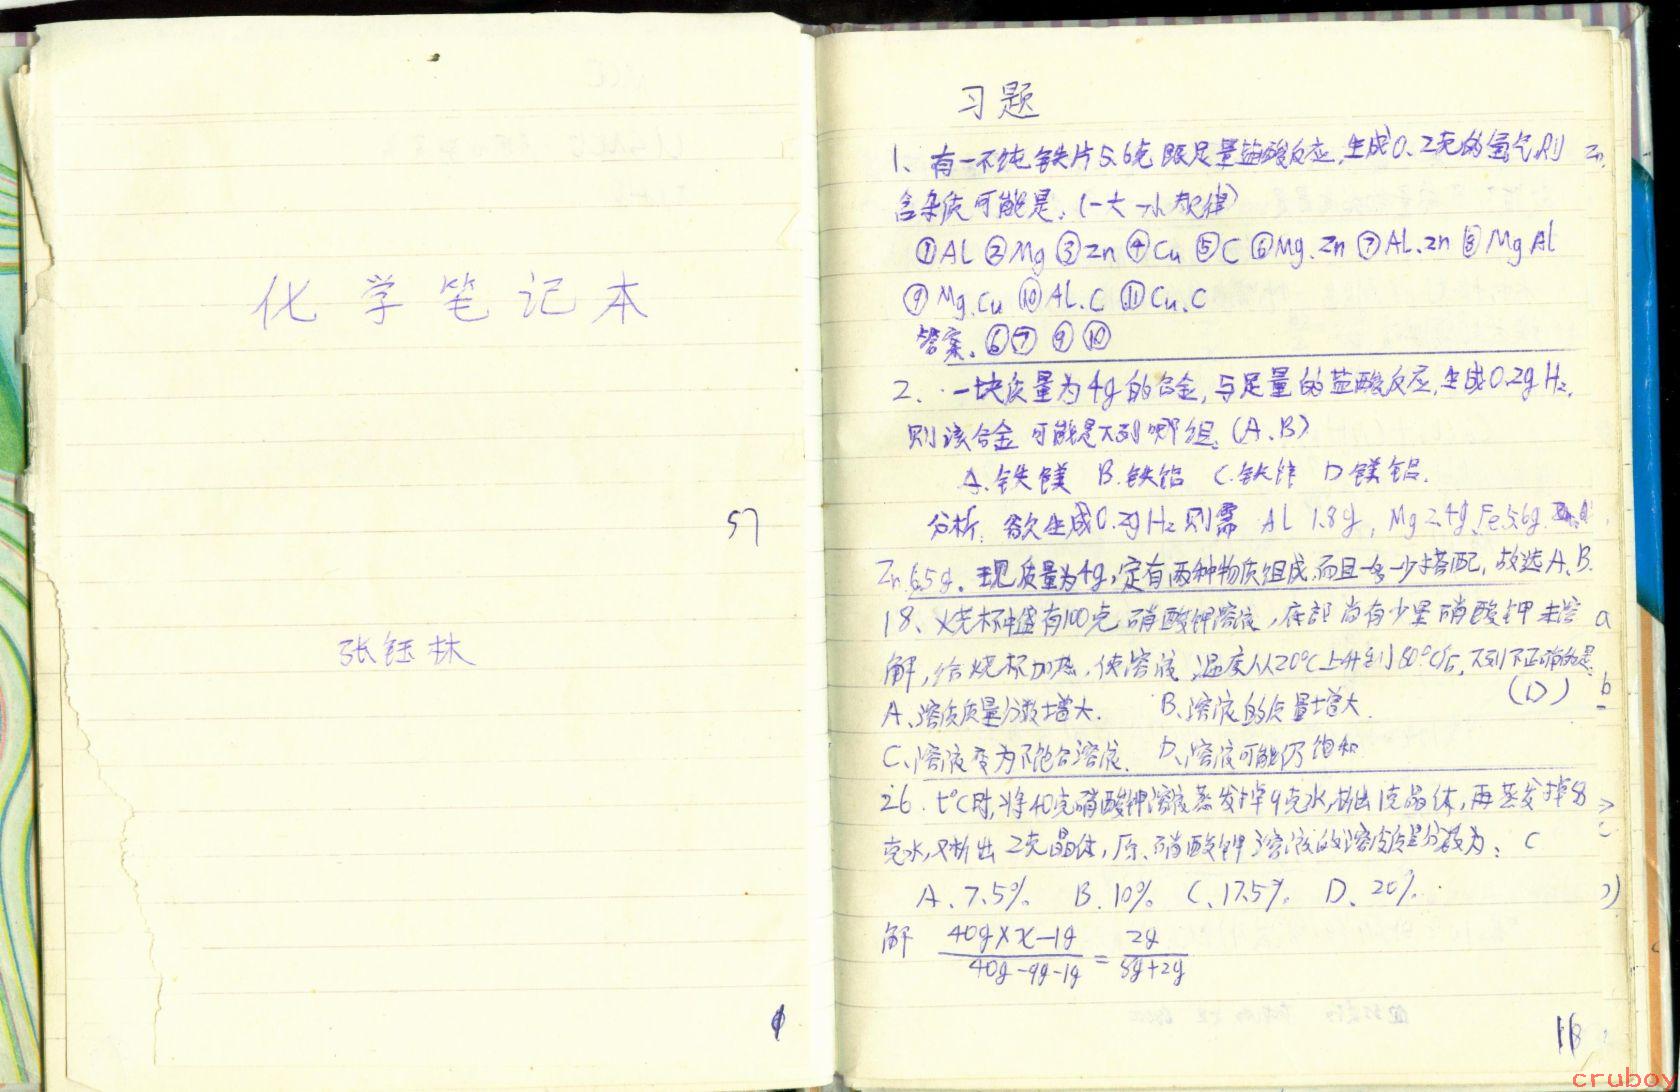 化学笔记本
57
张钰林
1
习题
1、有一不纯铁片5.6克跟足量盐酸反应,生成0.2克的氢气,则
含杂质可能是:(一大一小规律)
①AL ②Mg ③Zn ④Cu ⑤C ⑥Mg.Zn ⑦AL.Zn ⑧Mg Al
⑨Mg.Cu ⑩AL.C ⑪Cu.C
答案、⑥⑦ ⑨ ⑩
2、一块质量为4g的合金,与足量的盐酸反应,生成0.2g H₂,
则该合金可能是下列哪组、(A、B)
A.铁镁 B.铁铝 C.铁锌 D镁铝.
分析:若欠生成0.2gH₂则需 AL 1.8g, Mg 2.4g,Fe5.6g.
Zn 6.5g. 现质量为4g,定有两种物质组成,而且一多一少搭配,故选A、B.
18、火尧杯中盛有100克硝酸钾溶液,底部尚有少量硝酸钾未溶
解,给烧杯加热,使溶液温度从20℃上升到80℃后,下列不正确的是
(D)
A、溶质质量分数增大. B、溶液的质量增大.
C、溶液变为不饱合溶液. D、溶液可能仍饱和
26. t℃时,将40克硝酸钾溶液蒸发掉9克水,析出1克晶体,再蒸发掉8
克水,又析出2克晶体,原硝酸钾溶液的溶质质量分数为: C
A、7.5% B.10% C、17.5% D、20%.
解 40g×x-1g / 40g-9g-1g = 2g / 8g+2g
18
cruboy